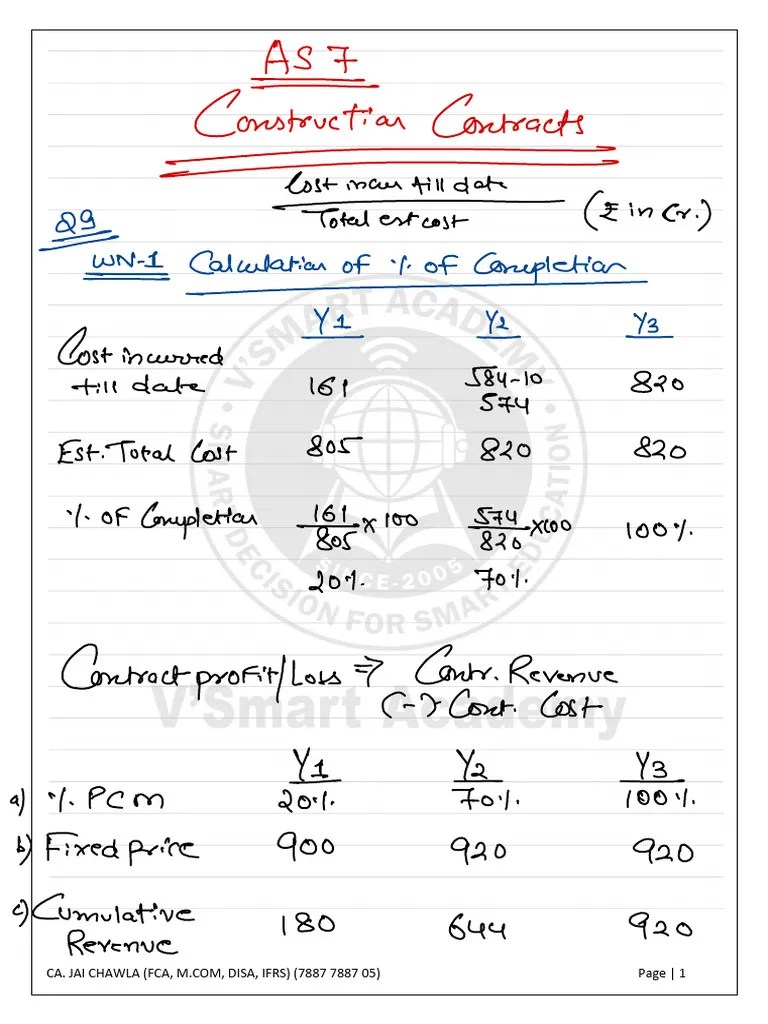 AS 7
Construction Contracts
Cost incurr till date
Total est cost
(₹ in Cr.)
Q9
WN-1 Calculation of % of Completion
Y1 Y2 Y3
Cost incurred
till date 161 584-10 820
574
Est. Total Cost 805 820 820
% of Completion 161/805 x 100 574/820 x 100 100%
20% 70%
Contract profit/Loss ⇒ Contr. Revenue
(-) Cont. Cost
Y1 Y2 Y3
a) % PCM 20% 70% 100%
b) Fixed price 900 920 920
c) Cumulative
Revenue 180 644 920
V'SMART ACADEMY
SMART DECISION FOR SMART EDUCATION
SINCE-2005
V'Smart Academy
CA. JAI CHAWLA (FCA, M.COM, DISA, IFRS) (7887 7887 05) Page | 1